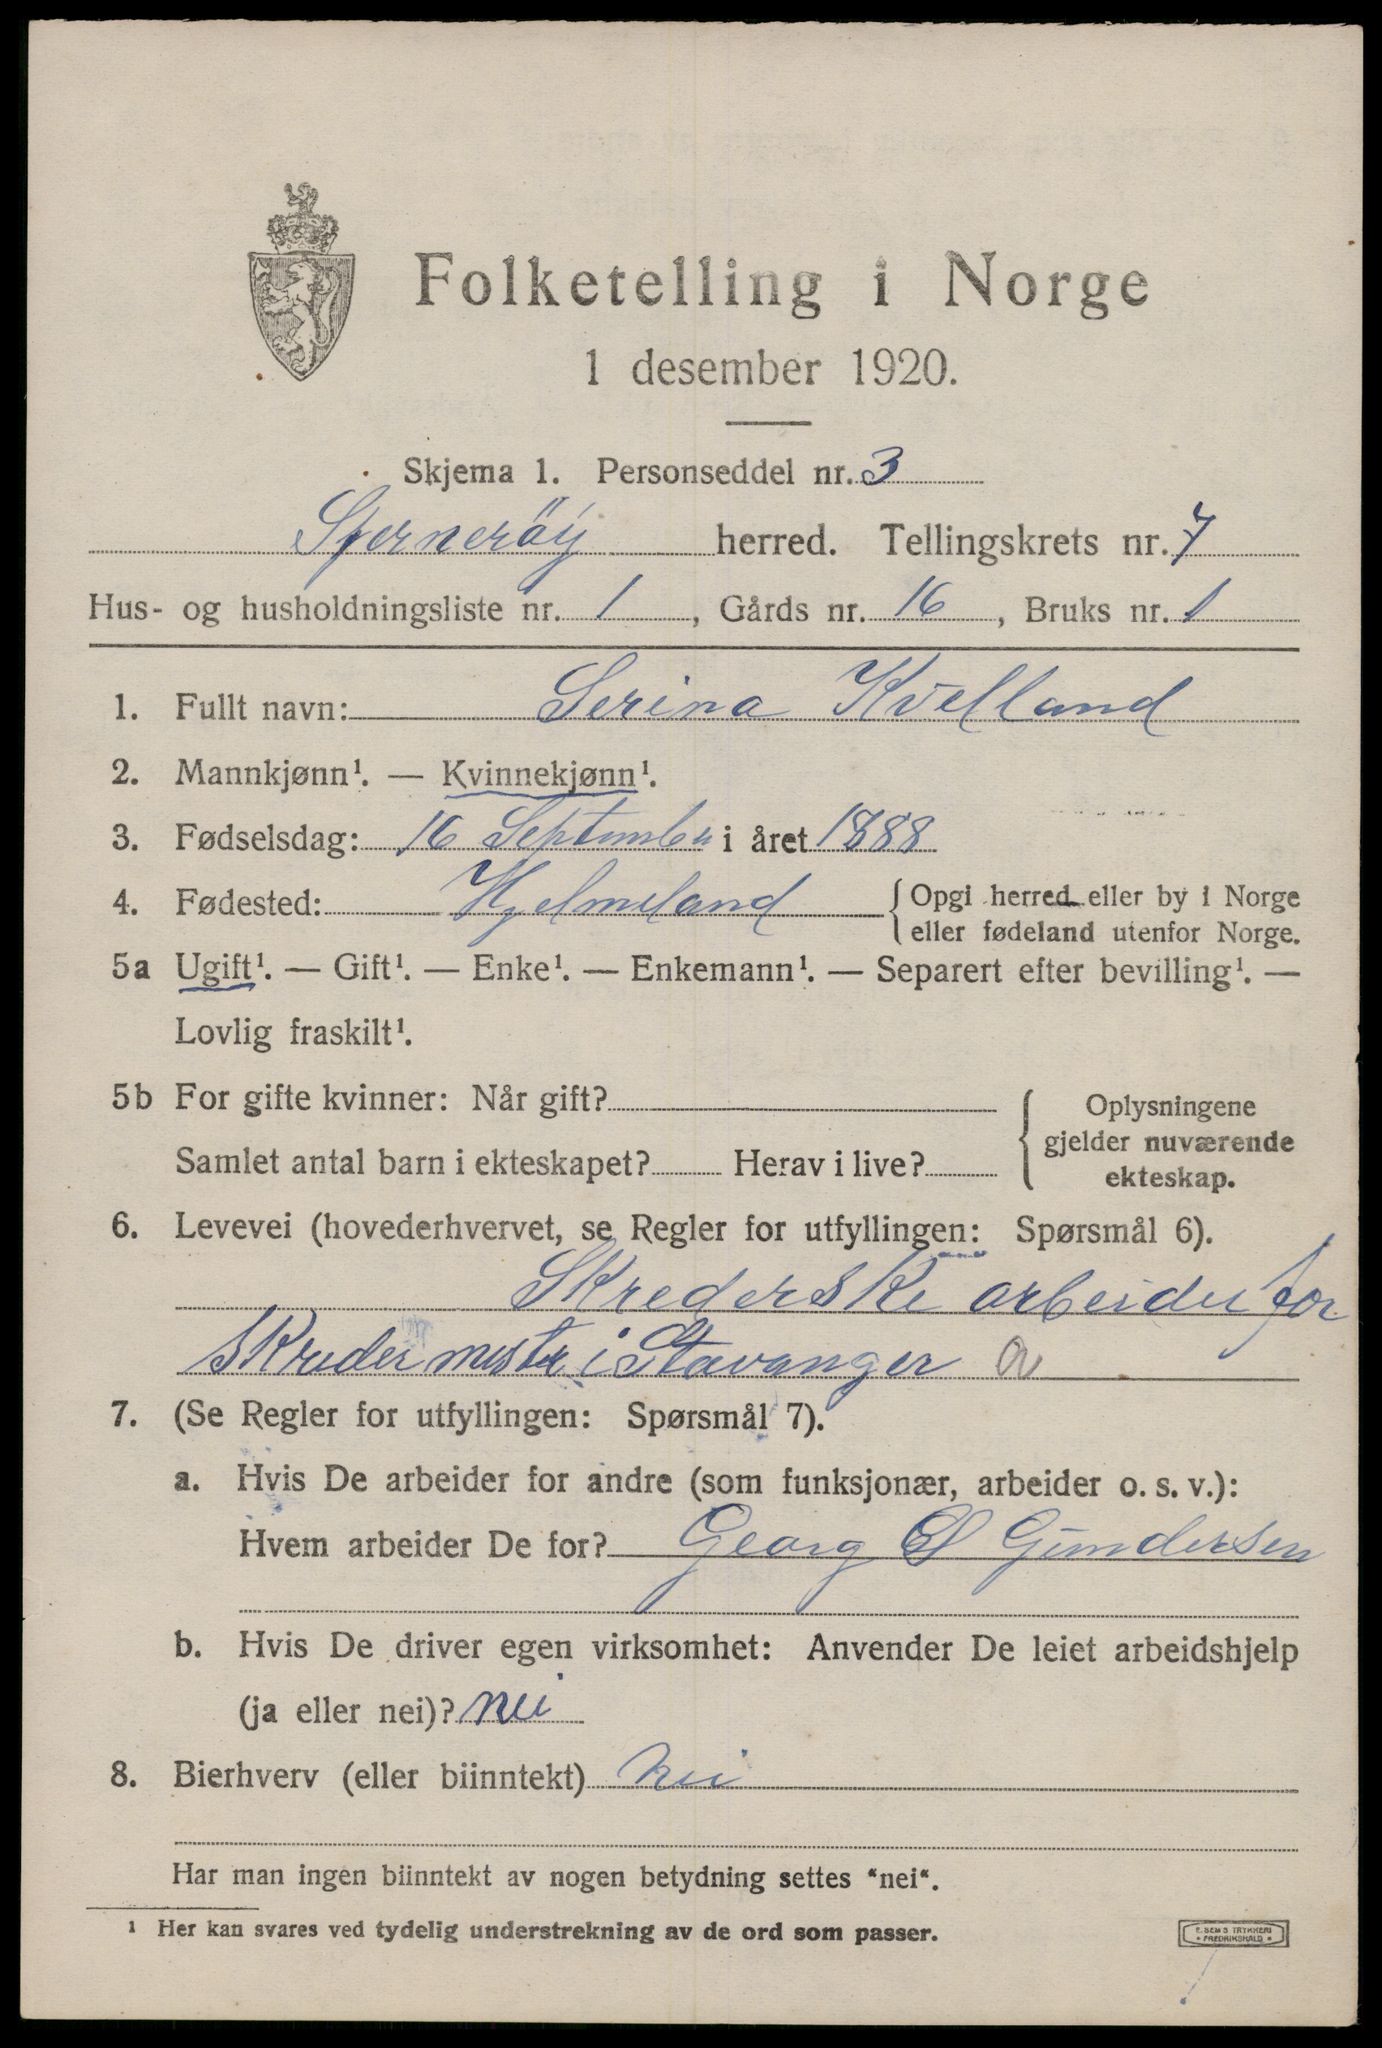 Folketelling i Norge
1 desember 1920.
Skjema 1. Personseddel nr. 3
Sjernerøy herred. Tellingskrets nr. 7
Hus- og husholdningsliste nr. 1, Gårds nr. 16, Bruks nr. 1
1. Fullt navn: Serina Kvelland
2. Mannkjønn¹. — Kvinnekjønn¹.
3. Fødselsdag: 16 September i året 1888
4. Fødested: Hjelmeland {Opgi herred eller by i Norge
eller fødeland utenfor Norge.
5a Ugift¹. — Gift¹. — Enke¹. — Enkemann¹. — Separert efter bevilling¹. —
Lovlig fraskilt¹.
5b For gifte kvinner: Når gift?
Samlet antal barn i ekteskapet? Herav i live?
{Oplysningene
gjelder nuværende
ekteskap.
6. Levevei (hovederhvervet, se Regler for utfyllingen: Spørsmål 6).
Skrederske arbeider for
Skreder mester i Stavanger a
7. (Se Regler for utfyllingen: Spørsmål 7).
a. Hvis De arbeider for andre (som funksjonær, arbeider o. s. v.):
Hvem arbeider De for? Georg Gundersen
b. Hvis De driver egen virksomhet: Anvender De leiet arbeidshjelp
(ja eller nei)? nei
8. Bierhverv (eller biinntekt) nei
Har man ingen biinntekt av nogen betydning settes "nei".
¹ Her kan svares ved tydelig understrekning av de ord som passer.
E. SEM'S TRYKKERI
* FREDRIKSHALD *